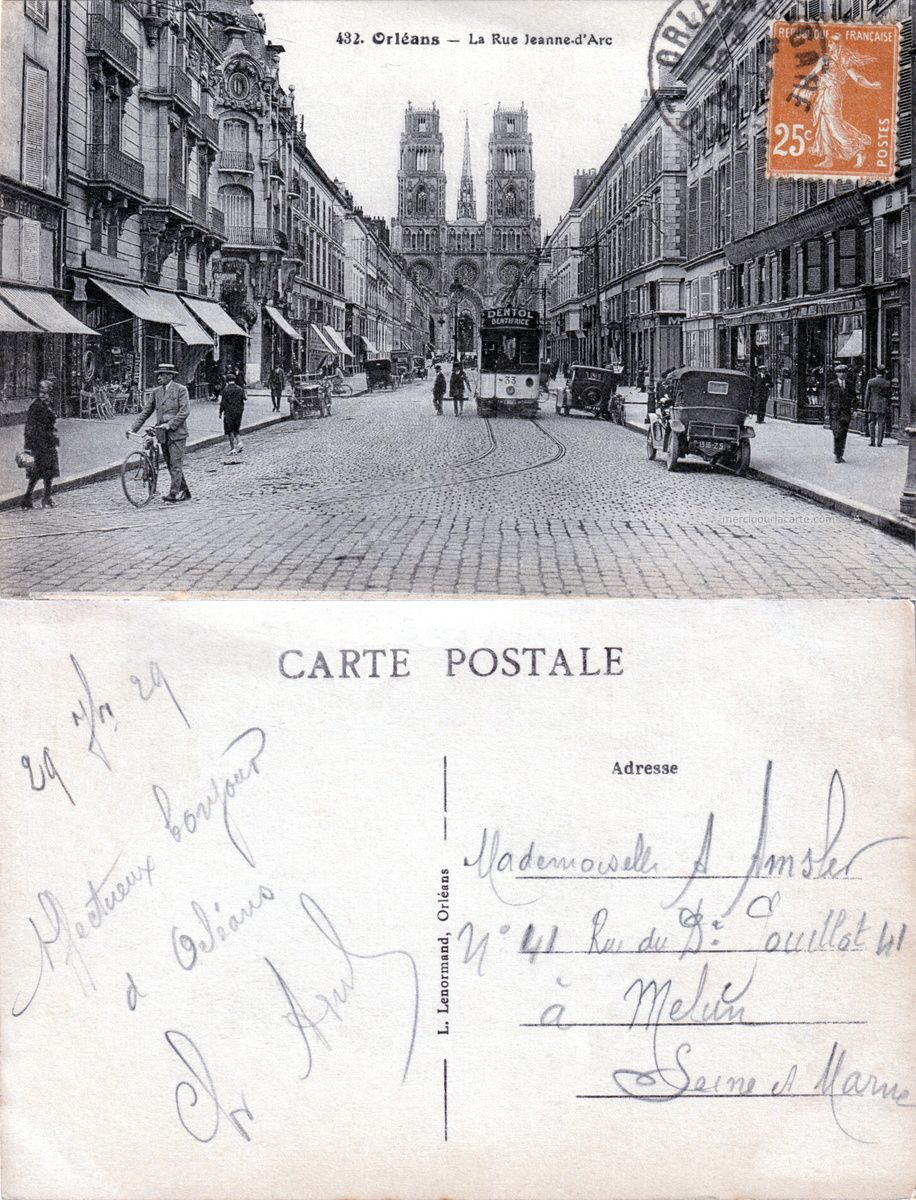 432. Orléans — La Rue Jeanne-d'Arc
ORLÉANS GARE
RÉPUBLIQUE FRANÇAISE
25c
POSTES
DENTOL
DENTIFRICE
33
mercipourlacarte.com
CARTE POSTALE
29 29
Affectueux bonjour
d Orléans
Adresse
Mademoiselle A Amsler
N° 41 Rue du Dr Pouillot 41
à Melun
Seine et Marne
L. Lenormand, Orléans